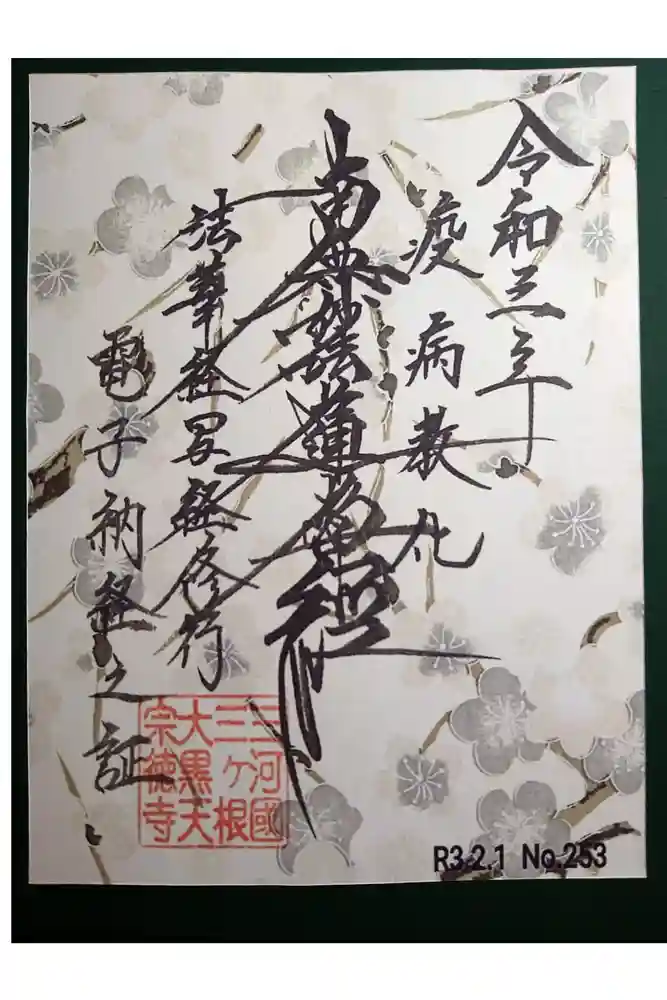 令和三年
疫病
南無妙法蓮華経
法華経写経修行
電子納経之証
三河國
三ヶ根
大黒天
宗徳寺
R3.2.1 No.253